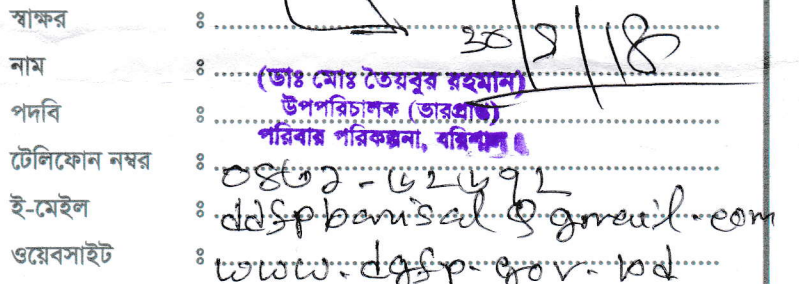 স্বাক্ষর ঃ 30/9/18
নাম ঃ (ডাঃ মোঃ তৈয়বুর রহমান)
পদবি ঃ উপপরিচালক (ভারপ্রাপ্ত)
পরিবার পরিকল্পনা, বরিশাল।
টেলিফোন নম্বর ঃ ০৪৩১-৬২৬৭২
ই-মেইল ঃ ddfpbarisal@gmail.com
ওয়েবসাইট ঃ www.dgfp.gov.bd